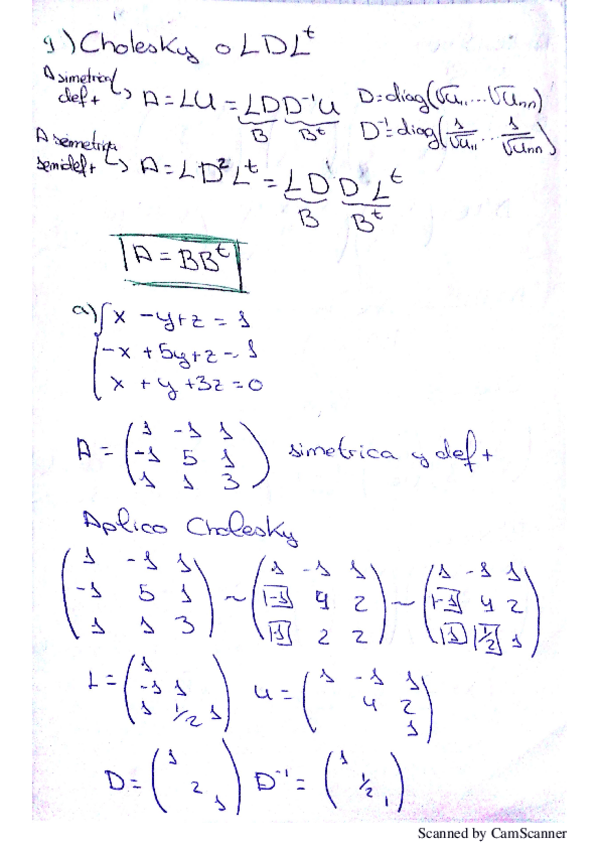 9) Cholesky o LDL^t
A simetrica def + → A = LU = LDD^-1U D = diag(√u11...√unn)
B B^t D^-1 = diag(1/√u11 ... 1/√unn)
A semetrica semidef + → A = LD²L^t = LD D L^t
B B^t
A = BB^t
a) { x - y + z = 1
-x + 5y + z = 1
x + y + 3z = 0
A = (1 -1 1 / -1 5 1 / 1 1 3) simetrica y def +
Aplico Cholesky
(1 -1 1 / -1 5 1 / 1 1 3) ~ (1 -1 1 / -1 4 2 / 1 2 2) ~ (1 -1 1 / -1 4 2 / 1 1/2 1)
L = (1 / -1 1 / 1 1/2 1) U = (1 -1 1 / 4 2 / 1)
D = (1 / 2 / 1) D^-1 = (1 / 1/2 / 1)
Scanned by CamScanner